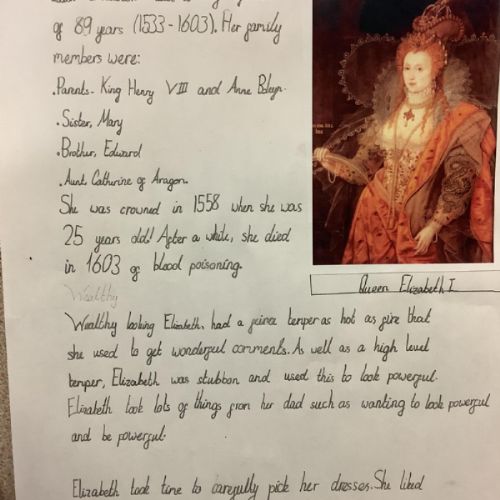 of 89 years (1533-1603). Her family
members were:
.Parents- King Henry VIII and Anne Boleyn.
.Sister, Mary
.Brother, Edward
.Aunt Catherine of Aragon.
She was crowned in 1558 when she was
25 years old! After a while, she died
in 1603 of blood poisoning.
Queen Elizabeth I
Wealthy
Wealthy looking Elizabeth, had a fierce temper as hot as fire that
she used to get wonderful comments. As well as a high level
temper, Elizabeth was stubbon and used this to look powerful.
Elizabeth took lots of things from her dad such as wanting to look powerful
and be powerful.
Elizabeth took time to carefully pick her dresses. She liked